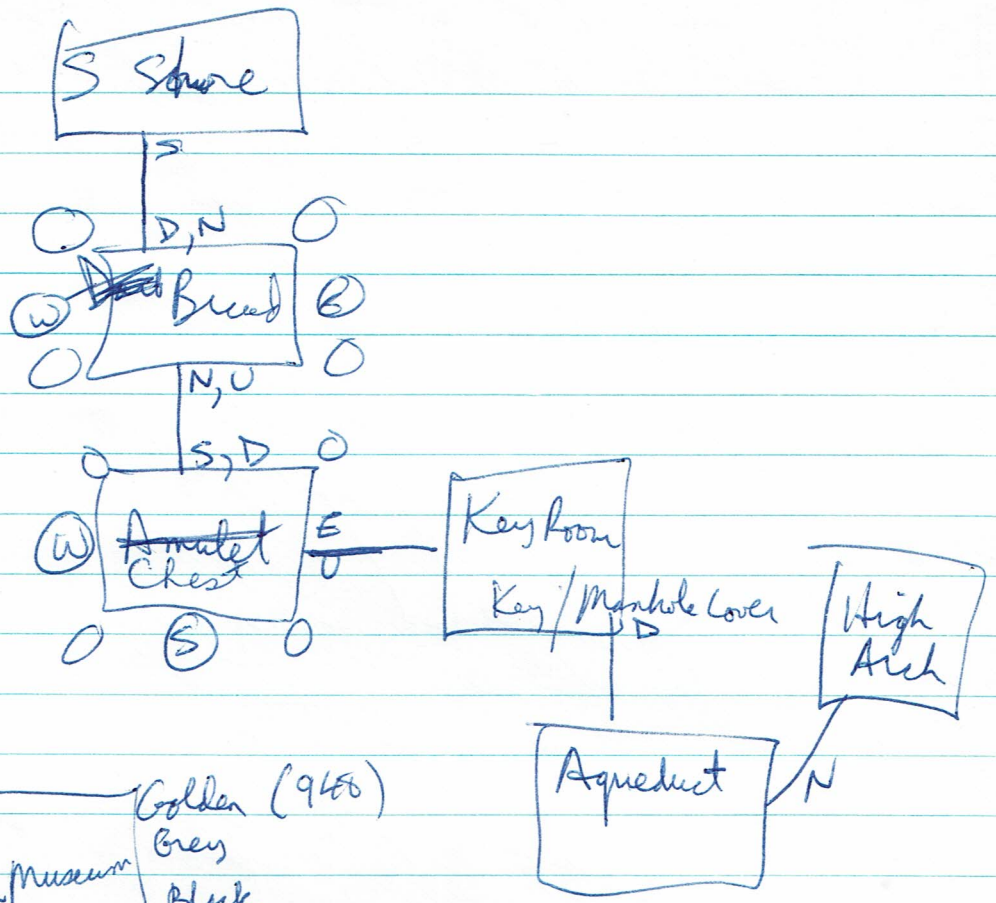 S Shore
S
D, N
W
Bread
E
N, U
S, D
W
Amulet
Chest
E
U
S
Key Room
Key/Manhole Cover
D
High
Arch
Aqueduct
N
Golden (948)
Grey
Museum
Black